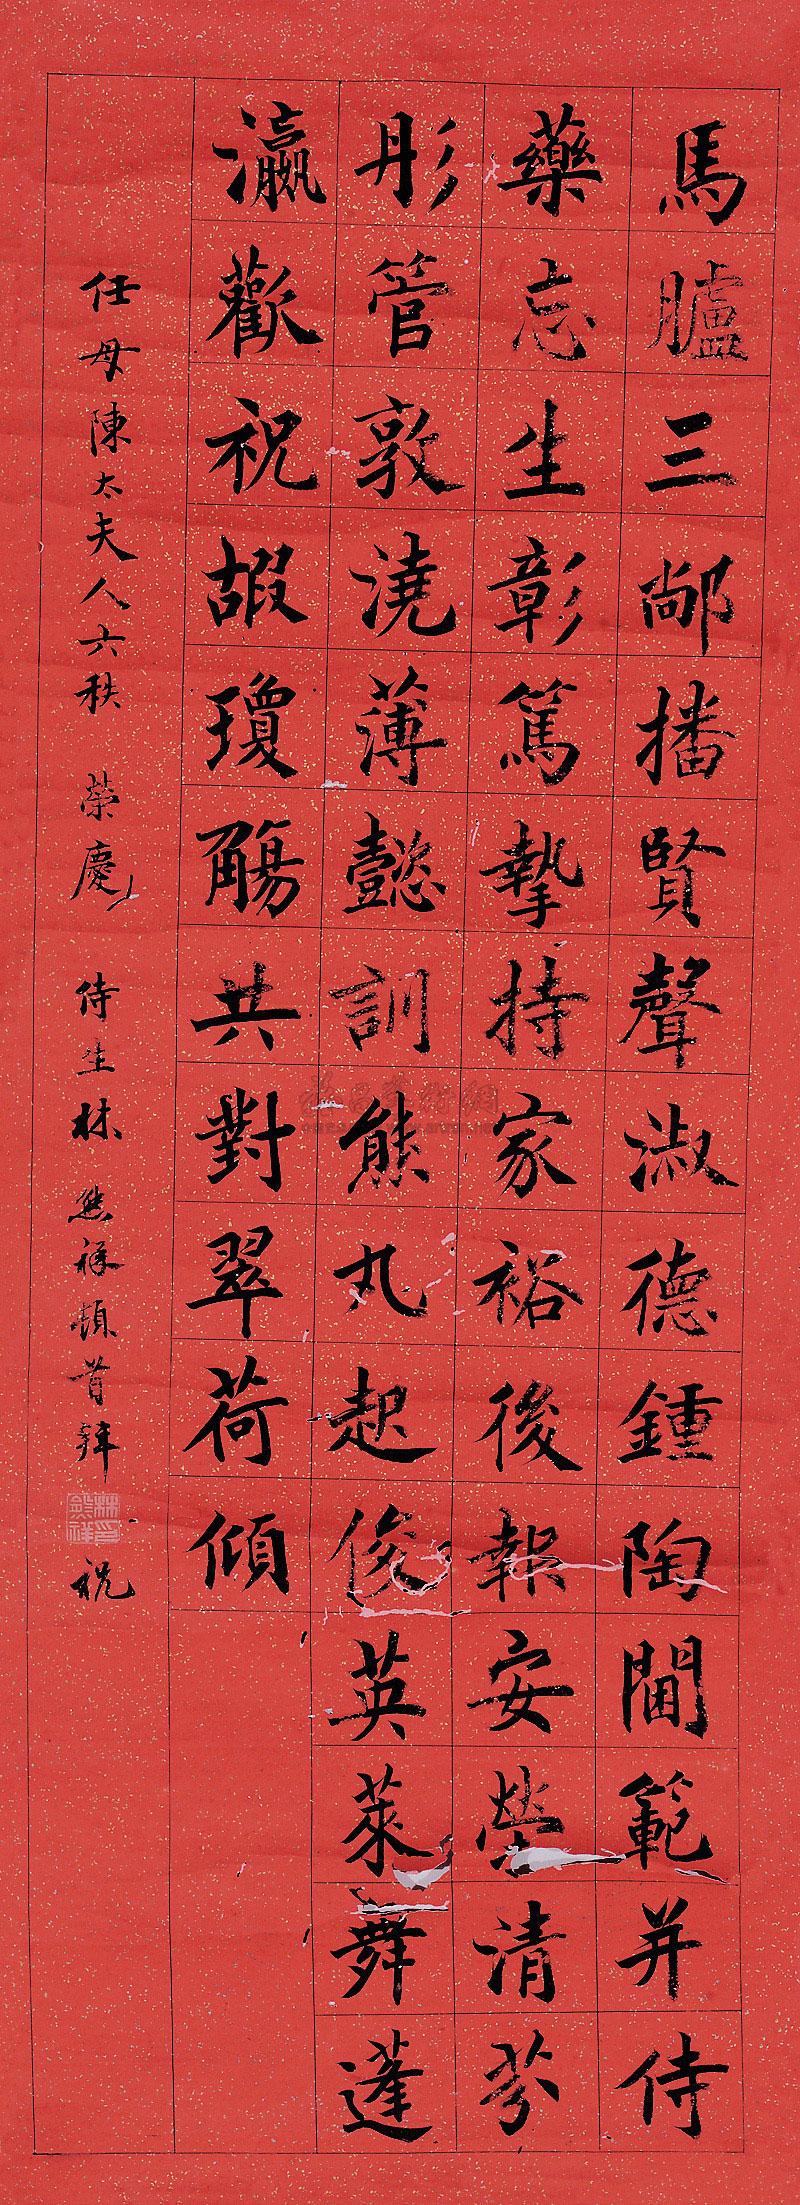 馬臚三鄰播賢聲淑德鍾陶閫範并侍
藥忘生彰篤摯持家裕後報安榮清芬
彤管敦澆薄懿訓熊丸起俊英萊舞蓬
瀛歡祝嘏瓊觴共對翠荷傾
任母陳太夫人六秩 榮慶 侍生林熊祥頓首拜祝